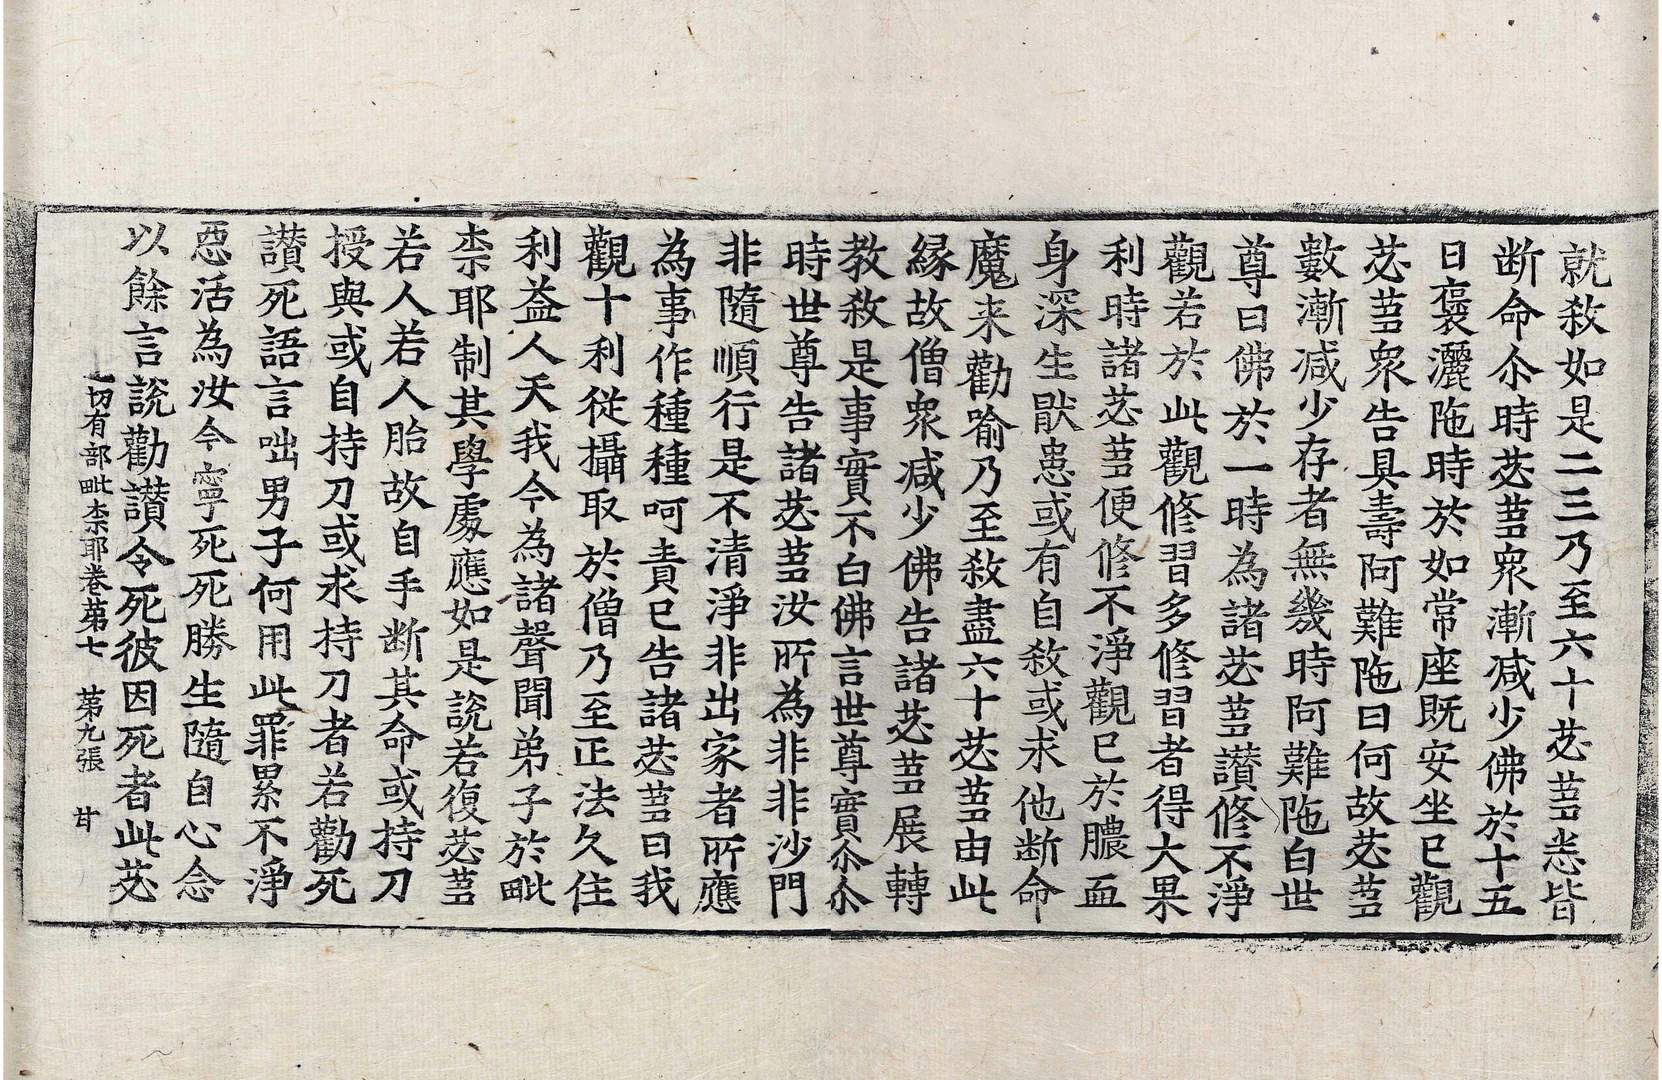 就敎如是二三乃至六十苾蒭悉皆
断命尒時苾蒭衆漸减少佛於十五
日褒灑陁時於如常座既安坐已觀
苾蒭衆告具壽阿難陁曰何故苾蒭
數漸减少存者無幾時阿難陁白世
尊曰佛於一時為諸苾蒭讃修不淨
觀若於此觀修習多修習者得大果
利時諸苾蒭便修不淨觀已於膿血
身深生猒患或有自敎或求他断命
魔来勸喻乃至敎盡六十苾蒭由此
縁故僧衆减少佛告諸苾蒭展轉
教敎是事實不白佛言世尊實尒尒
時世尊告諸苾蒭汝所為非非沙門
非隨順行是不清淨非出家者所應
為事作種種呵責已告諸苾蒭曰我
觀十利從攝取於僧乃至正法久住
利益人天我今為諸聲聞弟子於毗
柰耶制其學處應如是說若復苾蒭
若人若人胎故自手断其命或持刀
授與或自持刀或求持刀者若勸死
讃死語言咄男子何用此罪累不淨
惡活為汝今寧死死勝生隨自心念
以餘言說勸讃令死彼因死者此苾
一切有部毗柰耶卷苐七　苐九張　甘